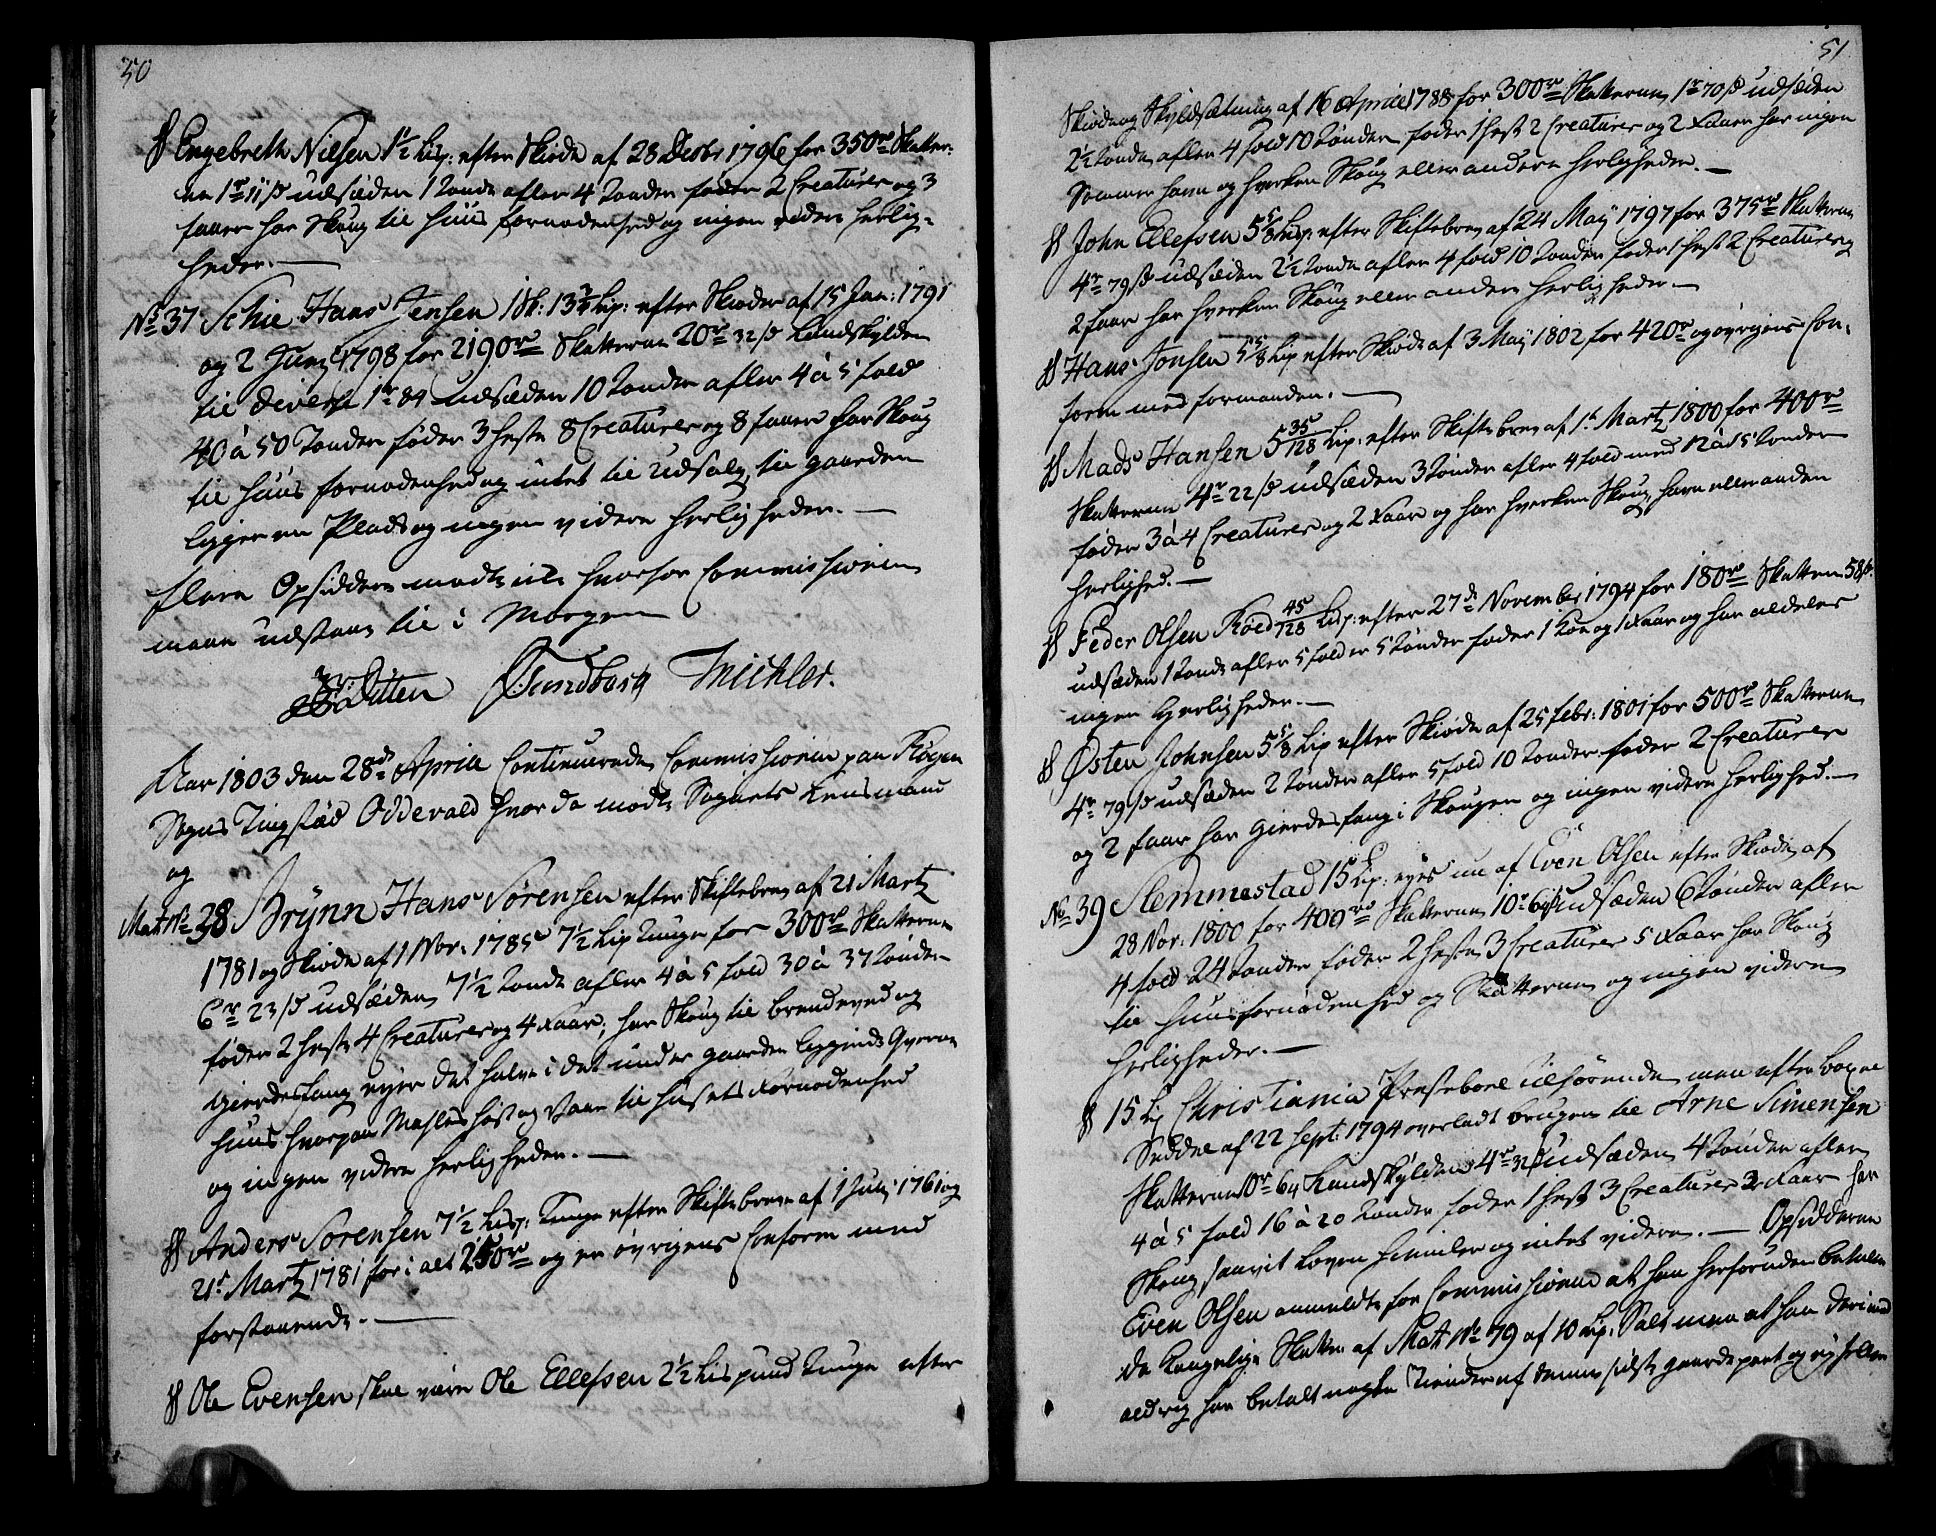 50
§ Engebreth Nielsen 1½ Lisp: efter Skiøde af 28 Decbr 1796 for 350rd Skatter-
ne 1rd 11 s udsæden 1 Tonde afler 4 Tonder føder 2 Creaturer og 3
faaer har Skoug til Huus fornødenhed og ingen videre herlig-
heder. —
No 37 Schie Hans Jensen 1 Sk: 13¾ Lip: efter Skiøder af 15 Jan: 1791
og 2 Junj 1798 for 2190rd Skatterne 20rd 32 s Landskylden
til diverse 1rd 84 udsæden 10 Tonder afler 4 à 5 fold
40 à 50 Tonder føder 3 Heste 8 Creaturer og 8 faaer har Skoug
til Huus fornødenhed og intet til Udsalg, til gaarden
ligger en Plads og ingen videre Herligheder. —
flere Opsiddere mødte ei hvorfor Commissionen
maae udstaae til i Morgen
Ditten Sundborg Michler.
Aar 1803 den 28de Aprill Continuerede Commissionen paa Røgen
Sogns Tingstæd Oddevald hvor da mødte Sognets Lensmand
og
Mat No 38. Brÿnn Hans Sørensen efter Skiftebrev af 21 Martz
1781 og Skiøde af 1 Nov: 1785 7½ Lip Tunge for 300rd Skatterne
6rd 23 s udsæden 7½ Tonde afler 4 à 5 fold 30 à 37 Tonder
føder 2 Heste 4 Creaturer og 4 Faar; har Skoug til brendeved og
gierdesfang eyer det halve i det under gaarden liggende Qverne
Huus hvorpaa Mahles høst og Vaar til Husets Fornødenhed
og ingen videre herligheder. —
§ Anders Sørensen 7½ Lisp: Tunge efter Skiftebreve af 1 Julj 1761 og
21de Martz 1781 for i alt 250rd og er øvrigens Conform med
forstaaende. —
§ Ole Evensen skal være Ole Ellefsen 2½ Lispund Tunge efter
51
Skiøde og Skyldsætning af 16 April 1788 for 300rd Skatterne 1rd 70 s udsæden
2½ Tonde afler 4 fold 10 Tønder føder 1 Hest 2 Creaturer og 2 Faaer har ingen
Sommer havn og hverken Skoug eller andere Herligheder. —
§ John Ellefsen 5⅝ Lisp: efter Skiftebrev af 24 Maÿ 1797 for 375rd Skatterne
4rd 79 s udsæden 2½ Tonde afler 4 fold 10 Tonder føder 1 Hest 2 Creaturer og
2 faar har hverken Skoug eller andere Herligheder —
§ Hans Jonsen 5⅝ Lip efter Skiøde af 3 Maÿ 1802 for 420rd og øvrigens Con-
form med formanden. —
§ Mads Hansen 5 35/128 Lip: efter Skiftebrev af 1t Martz 1800 for 400rd
Skatterne 4rd 22 s udsæden 3 Tønder afler 4 fold med 12 à 15 Tonder
føder 3 à 4 Creaturer og 2 Faar og har hverken Skoug, havn eller anden
herlighed. —
§ Peder Olsen Røed 45/128 Lisp: efter 27de November 1794 for 180rd Skatten 58 s
udsæden 1 Tonde afler 5 fold er 5 Tønder føder 1 Koe og 1 Faar og har aldeles
ingen Herligheder. —
§ Østen Johnsen 5⅝ Lip efter Skiøde af 25 febr: 1801 for 500rd Skatterne
4rd 79 s udsæden 2 Tønder afler 5 fold 10 Tonder føder 2 Creaturer
og 2 faar har gierdesfang i Skougen og ingen videre herlighed. —
No 39 Slemmestad 15 Lip: eyes nu af Even Olsen efter Skiøde af
28 Nov: 1800 for 400rd Skatterne 10rd 64 s udsæden 6 Tønder afler
4 fold 24 Tønder føder 2 Heste 3 Creaturer 5 Faar har Skoug
til Huusfornødenhed og Skatterne og ingen videre
herligheder. —
§ 15 Lip Christiania Præsteboel tilhørende men efter boxel
Seddel af 22 Sept: 1794 overladt brugen til Arne Simensen
Skatterne 10rd 64 Landskylden 4rd 32 s udsæden 4 Tønder afler
4 à 5 fold 16 à 20 Tonder føder 1 Hest 3 Creaturer 2 Faar har
Skoug saavit Loven hiemler og intet videre. — Opsidderne
Even Olsen anmeldte for Commissionen at han herforuden betaler
de kongelige Skatter af Mat No 79 af 10 Lip. Salt men at han derimod
aldrig har betalt nogle Tiender af denne sidste gaardepart og ej heller